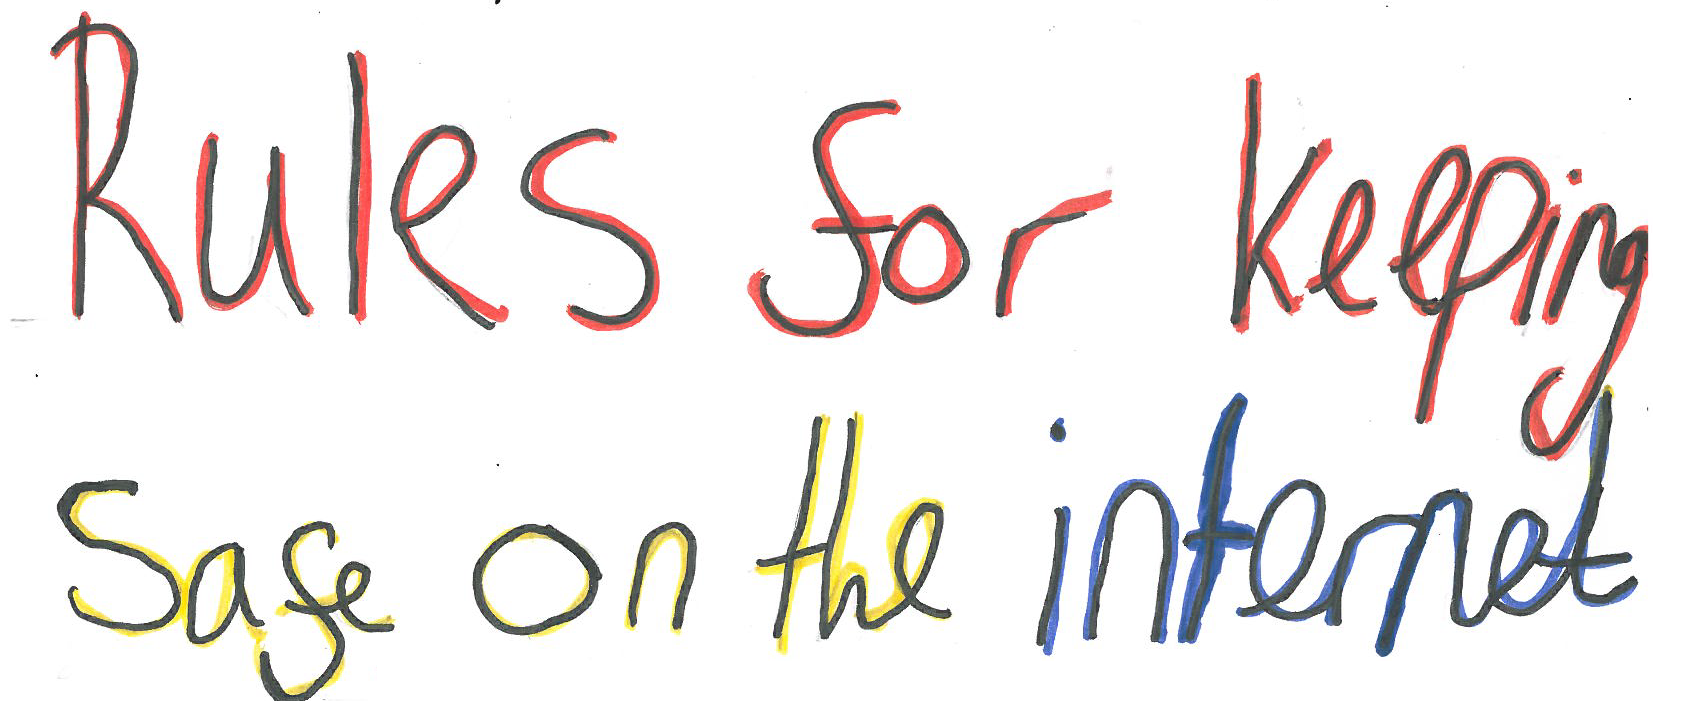 Rules for keeping
Safe on the internet